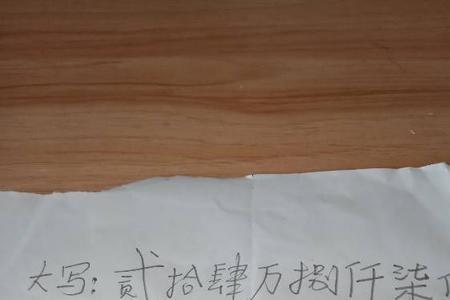 大写：贰拾肆万捌仟柒